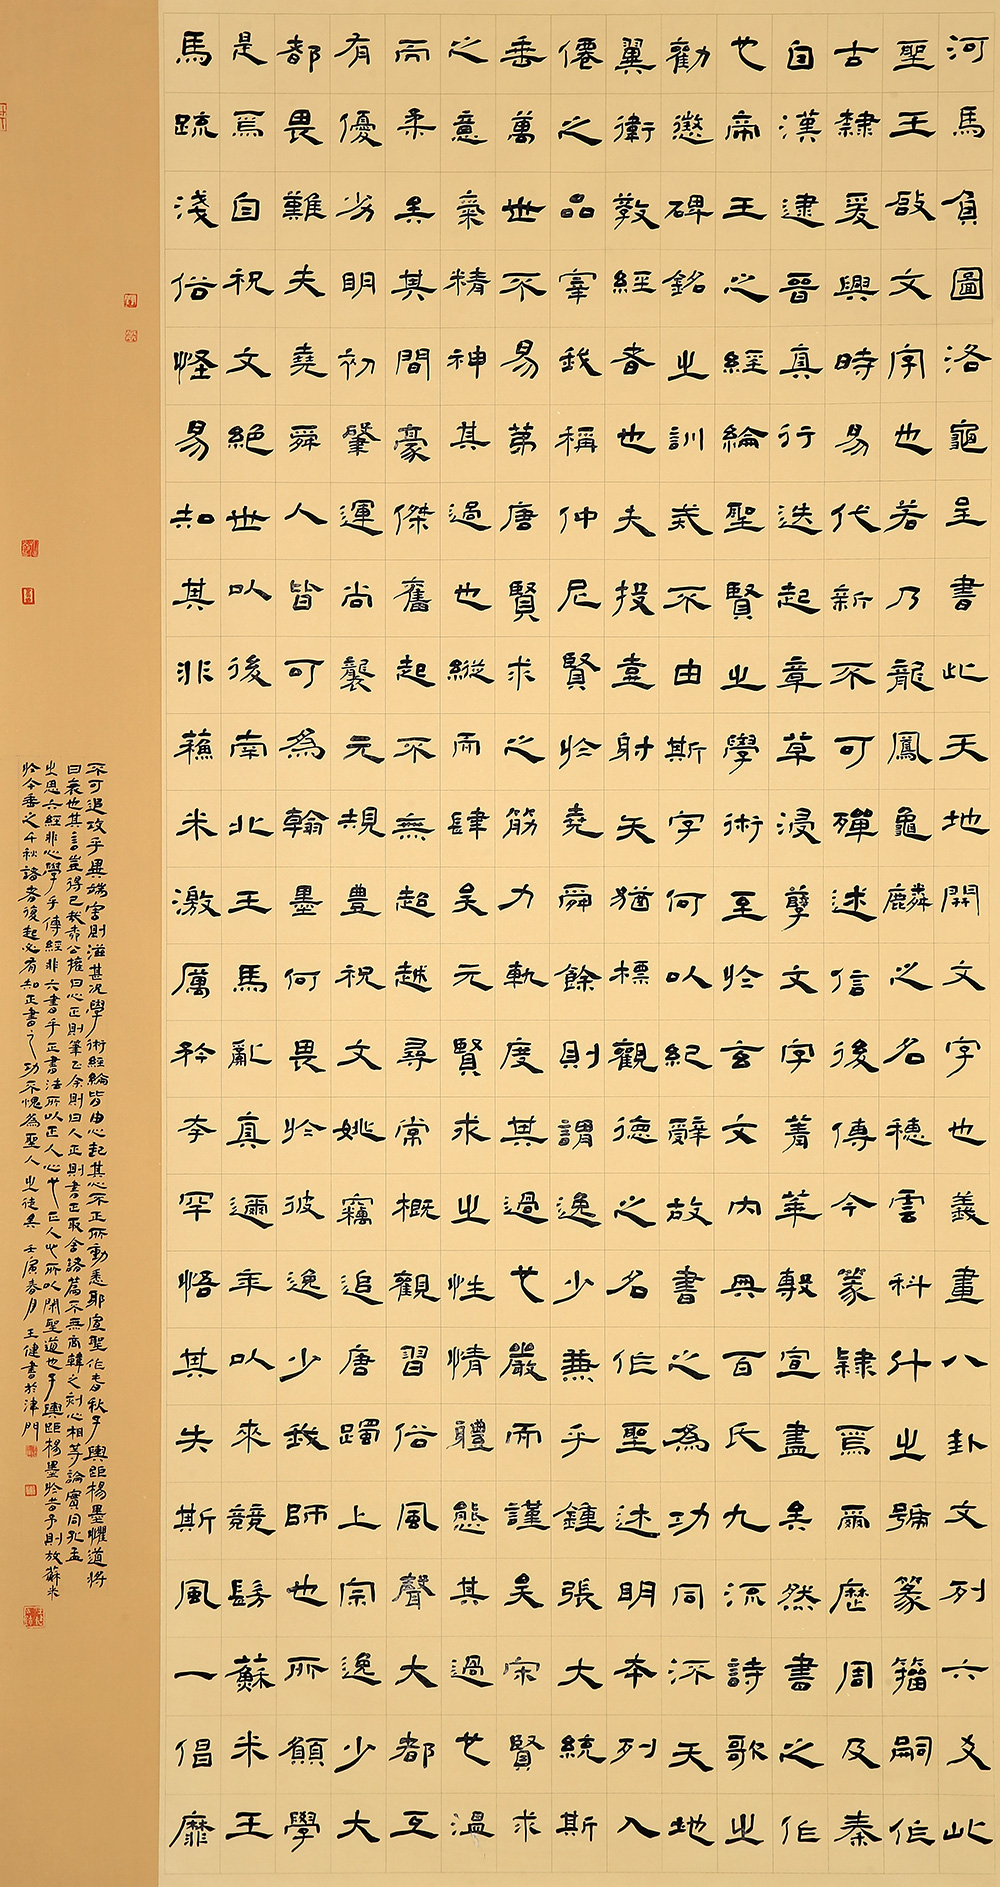 河馬負圖洛龜呈書此天地開文字也羲畫八卦文列六爻此
聖王啟文字也若乃龍鳳龜麟之名穗雲科斗之號篆籀嗣作
古隸爰興時易代新不可殫述信後傳今篆隸焉爾歷周及秦
自漢逮晉真行迭起章草浸孽文字菁華敷宣盡矣然書之作
也帝王之經綸聖賢之學術至於玄文內典百氏九流詩歌之
勸懲碑銘之訓戒不由斯字何以紀辭故書之為功同流天地
翼衛教經者也夫投壺射矢猶標觀德之名作聖述明本列入
僊之品宰我稱仲尼賢於堯舜餘則謂逸少兼乎鍾張大統斯
垂萬世不易第唐賢求之筋力軌度其過也嚴而謹矣宋賢求
之意氣精神其過也縱而肆矣元賢求之性情體態其過也溫
而柔矣其間豪傑奮起不無超越尋常概觀習俗風聲大都互
有優劣明初肇運尚襲元規豐祝文姚竊追唐躅上宗逸少大
都畏難夫堯舜人皆可為翰墨何畏於彼逸少我師也所願學
是焉自祝文絕世以後南北王馬亂真邇年以來競髣蘇米王
馬疏淺俗怪易知其非蘇米激厲矜夸罕悟其失斯風一倡靡
不可追攻乎異端害則滋甚況學術經綸皆由心起其心不正所動悉邪宣聖作春秋子輿距楊墨懼道將
日衰也其言豈得已哉柳公權曰心正則筆正余則曰人正則書正取舍諸篇不無商韓之刻心相等論實同孔孟
之思六經非心學乎傳經非六書乎正書法所以正人心也正人也所以閑聖道也子輿距楊墨於昔予則放蘇米
於今垂之千秋諸者後起必有知正書之功不愧為聖人之徒矣 壬寅春月王健書於津門